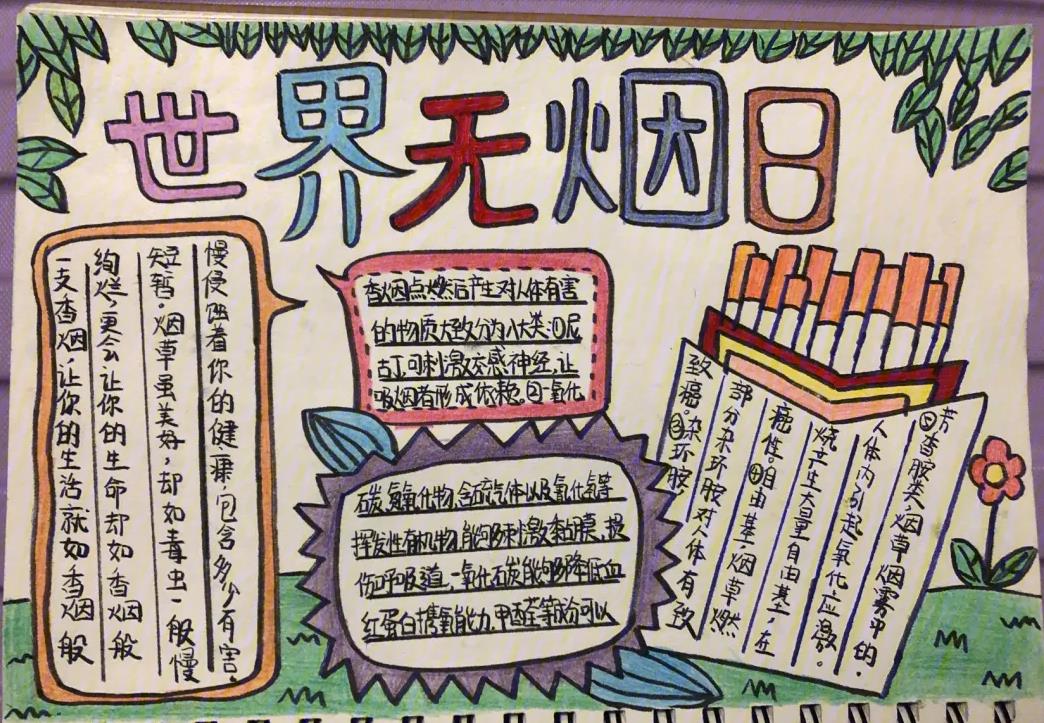 世界无烟日
一支香烟,让你的生活就如香烟般
绚烂,更会让你的生命却如香烟般
短暂。烟草虽美好,却如毒虫一般慢
慢侵蚀着你的健康,包含多少有害。
香烟点燃后产生对人体有害
的物质大致分为八大类:①尼
古丁,可刺激交感神经,让
吸烟者形成依赖。②一氧化
碳,氮氧化物,含硫气体以及氰化氢等
挥发性有机物,能够刺激黏膜,损
伤呼吸道,一氧化碳能够降低血
红蛋白携氧能力,甲醛等成份可以
致癌。③杂环胺,
部分杂环胺对人体有致
癌性。④自由基,烟草燃
烧产生大量自由基,在
人体内引起氧化应激。
⑤芳香胺类,烟草烟雾中的